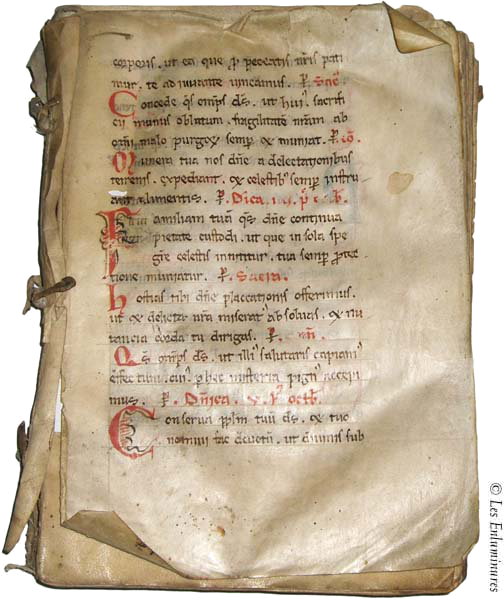 corporis. ut ea que p̱ peccatis nr̄is pati
mur. te adiuvante vincamus. P. Sac̄.
Concede qs om̄ps ds. ut hui' sacrifi
cii munus oblatum. fragilitatē nr̄am ab
om̄i malo purget semp̱ et muniat. P. cō.
Munera tua nos dn̄e a delectationibus
terrenis. expediant. et celestib' semp̱ instru
ant alimentis. P. Dn̄ica
Familiam tuā qs dn̄e continua
pietate custodi. ut que in sola spe
gr̄e celestis innititur. tua semp̱ protec
tione muniatur. P. Sacra.
Hostias tibi dn̄e placcationis offerimus.
ut et delicta nr̄a miserat' absolvas. et nu
tancia corda tu dirigas. P.
Qs om̄ps ds. ut illi' salutaris capiam'
effectum. cui' p̱ hec misteria pign' accepi
mus. P. Dn̄ica. V. P' octb̄.
Conserva pplm tuū ds. et tuo
nomini fac devotū. ut divinis sub
© Les Enluminures